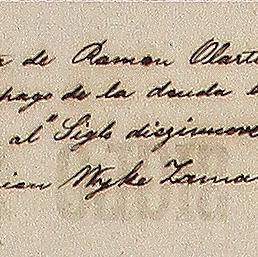 de Ramon Olarte
pago de la deuda
al "Siglo diezinueve
Wyke Zama